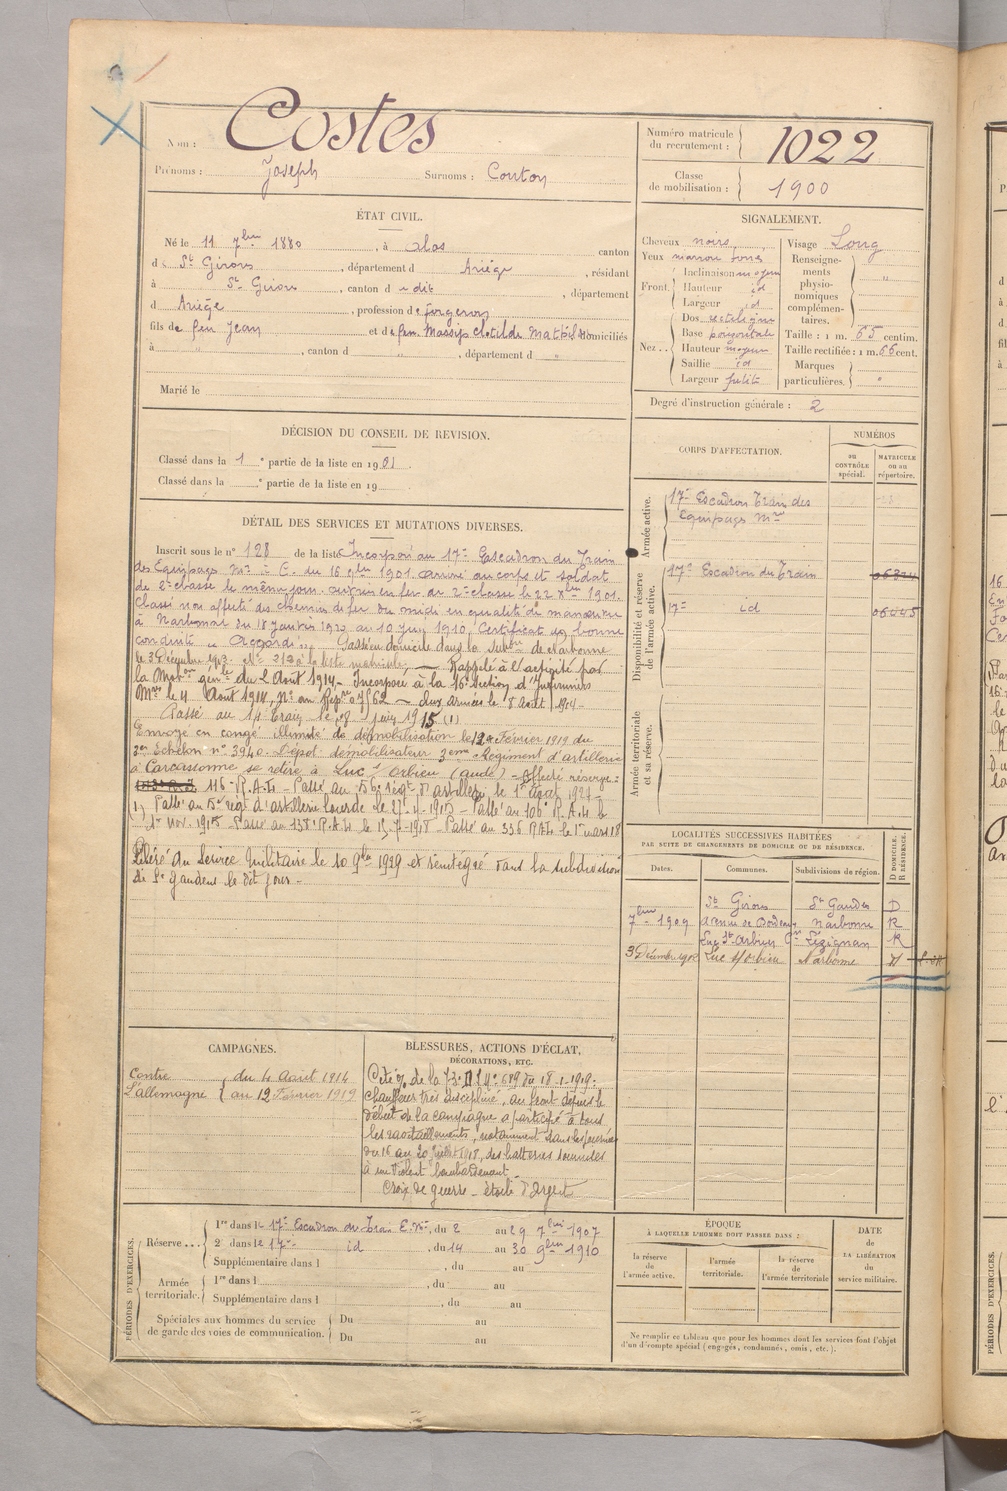 Nom : Costes
Prénoms : Joseph Surnoms : Couton
Numéro matricule du recrutement : 1022
Classe de mobilisation : 1900
ÉTAT CIVIL.
Né le 11 7bre 1880, à Alos canton
d St Girons, département d Ariège, résidant
à St Girons, canton d u dit, département
d Ariège, profession de forgeron
fils de feu Jean et de feu Massip Clotilde Mathilde domiciliés
à " , canton d " , département d "
Marié le
SIGNALEMENT.
Cheveux noirs
Yeux marron
Front.
Inclinaison moyen
Hauteur id
Largeur id
Nez..
Dos rectiligne
Base horizontale
Hauteur moyen
Saillie id
Largeur petite
Visage Long
Renseignements physionomiques complémentaires. "
Taille : 1 m. 65 centim.
Taille rectifiée : 1 m. 66 cent.
Marques particulières. "
Degré d'instruction générale : 2
DÉCISION DU CONSEIL DE REVISION.
Classé dans la 1e partie de la liste en 1901.
Classé dans la e partie de la liste en 19
CORPS D'AFFECTATION.
NUMÉROS
au CONTRÔLE spécial.
MATRICULE ou au répertoire.
Armée active.
17e Escadron Train des
Equipages Mre
Disponibilité et réserve de l'armée active.
17e Escadron du Train
17e id
Armée territoriale et sa réserve.
DÉTAIL DES SERVICES ET MUTATIONS DIVERSES.
Inscrit sous le n° 128 de la liste Incorporé au 17e Escadron du Train
des Equipages Mre à C. du 16 9bre 1901. Arrivé au corps et soldat
de 2e classe le même jour.
Classé non affecté des chemins de fer du midi en qualité de manoeuvre
à Narbonne du 18 janvier au 10 juin 1910, Certificat de bonne
conduite "Accordé". Passé en domicile dans la Subon de Narbonne
le 3 Décembre N° 212 à la liste matricule. — Rappelé à l'activité par
la Mobon génle du 2 Août 1914. Incorporé à la 16e Section d'Infirmiers
Mres le 4 Août 1914, — aux armées le 8 août 1914 —
Passé au 14 Train le 8 juin 1915 (1)
Envoyé en congé illimité de démobilisation le 12 Février 1919 du
3er Echelon n° 3940. Dépôt démobilisateur 3eme Régiment d'artillerie
à Carcassonne se retire à Luc s/ Orbieu (Aude) = Affecté réserve =
116e R.A.H - Passé au 56e régt d'artillerie le 1er août 1921 -
(1) Passé au 5e régt d'artillerie lourde le - Passé au 106e R.A.H le
1er nov. 1915 - Passé au 138e R.A.H le - Passé au 336 RAH le 1er mars 18
Libéré du service militaire le 10 9bre 1929 et réintégré dans la subdivision
de St Gaudens le dit jour -
LOCALITÉS SUCCESSIVES HABITÉES
PAR SUITE DE CHANGEMENTS DE DOMICILE OU DE RÉSIDENCE.
Dates. Communes. Subdivisions de région. D DOMICILE. R RÉSIDENCE.
St Girons St Gaudens D
7bre 1909 Avenue de Bordeaux Narbonne R
Luc St Orbieu Cn Lézignan R
3 Décembre Luc s/Orbieu Narbonne D
CAMPAGNES.
Contre du 4 Août 1914
L'allemagne au 12 Février 1919
BLESSURES, ACTIONS D'ÉCLAT,
DÉCORATIONS, ETC.
Cité de la 73e D.I. n° 689 du 18-1-1919.
Chauffeur très discipliné, au front depuis le
début de la campagne a participé à tous
les ravitaillements, notamment dans les journées
du 16 au 20 juillet 1918, des batteries soumises
à un violent bombardement -
Croix de guerre - étoile d'Argent
PÉRIODES D'EXERCICES.
Réserve...
1re dans le 17e Escadron du Train E. Mre, du 2 au 29 7bre 1907
2e dans le 17e id, du 14 au 30 9bre 1910
Supplémentaire dans l , du au
Armée territoriale.
1re dans l , du au
Supplémentaire dans l , du au
Spéciales aux hommes du service de garde des voies de communication.
Du au
Du au
ÉPOQUE
À LAQUELLE L'HOMME DOIT PASSER DANS :
la réserve de l'armée active.
l'armée territoriale.
la réserve de l'armée territoriale
DATE de LA LIBÉRATION du service militaire.
Ne remplir ce tableau que pour les hommes dont les services font l'objet
d'un décompte spécial (engagés, condamnés, omis, etc.).